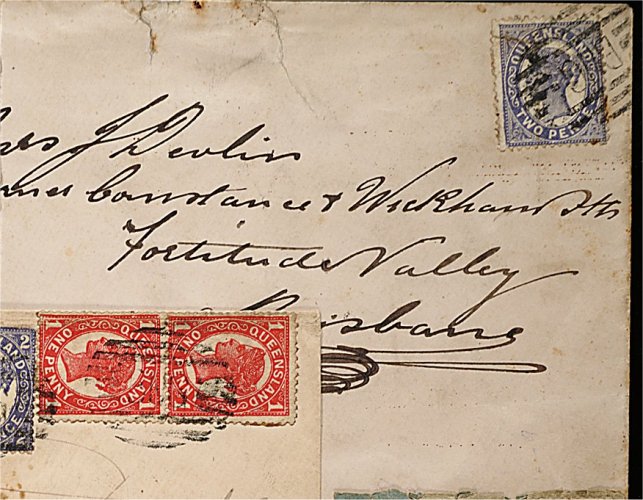 QUEENSLAND
TWO PENCE
J Devlin
Constance & Wickham Sts
Fortitude Valley
Brisbane
1 QUEENSLAND 1
ONE PENNY
1 QUEENSLAND 1
ONE PENNY
2